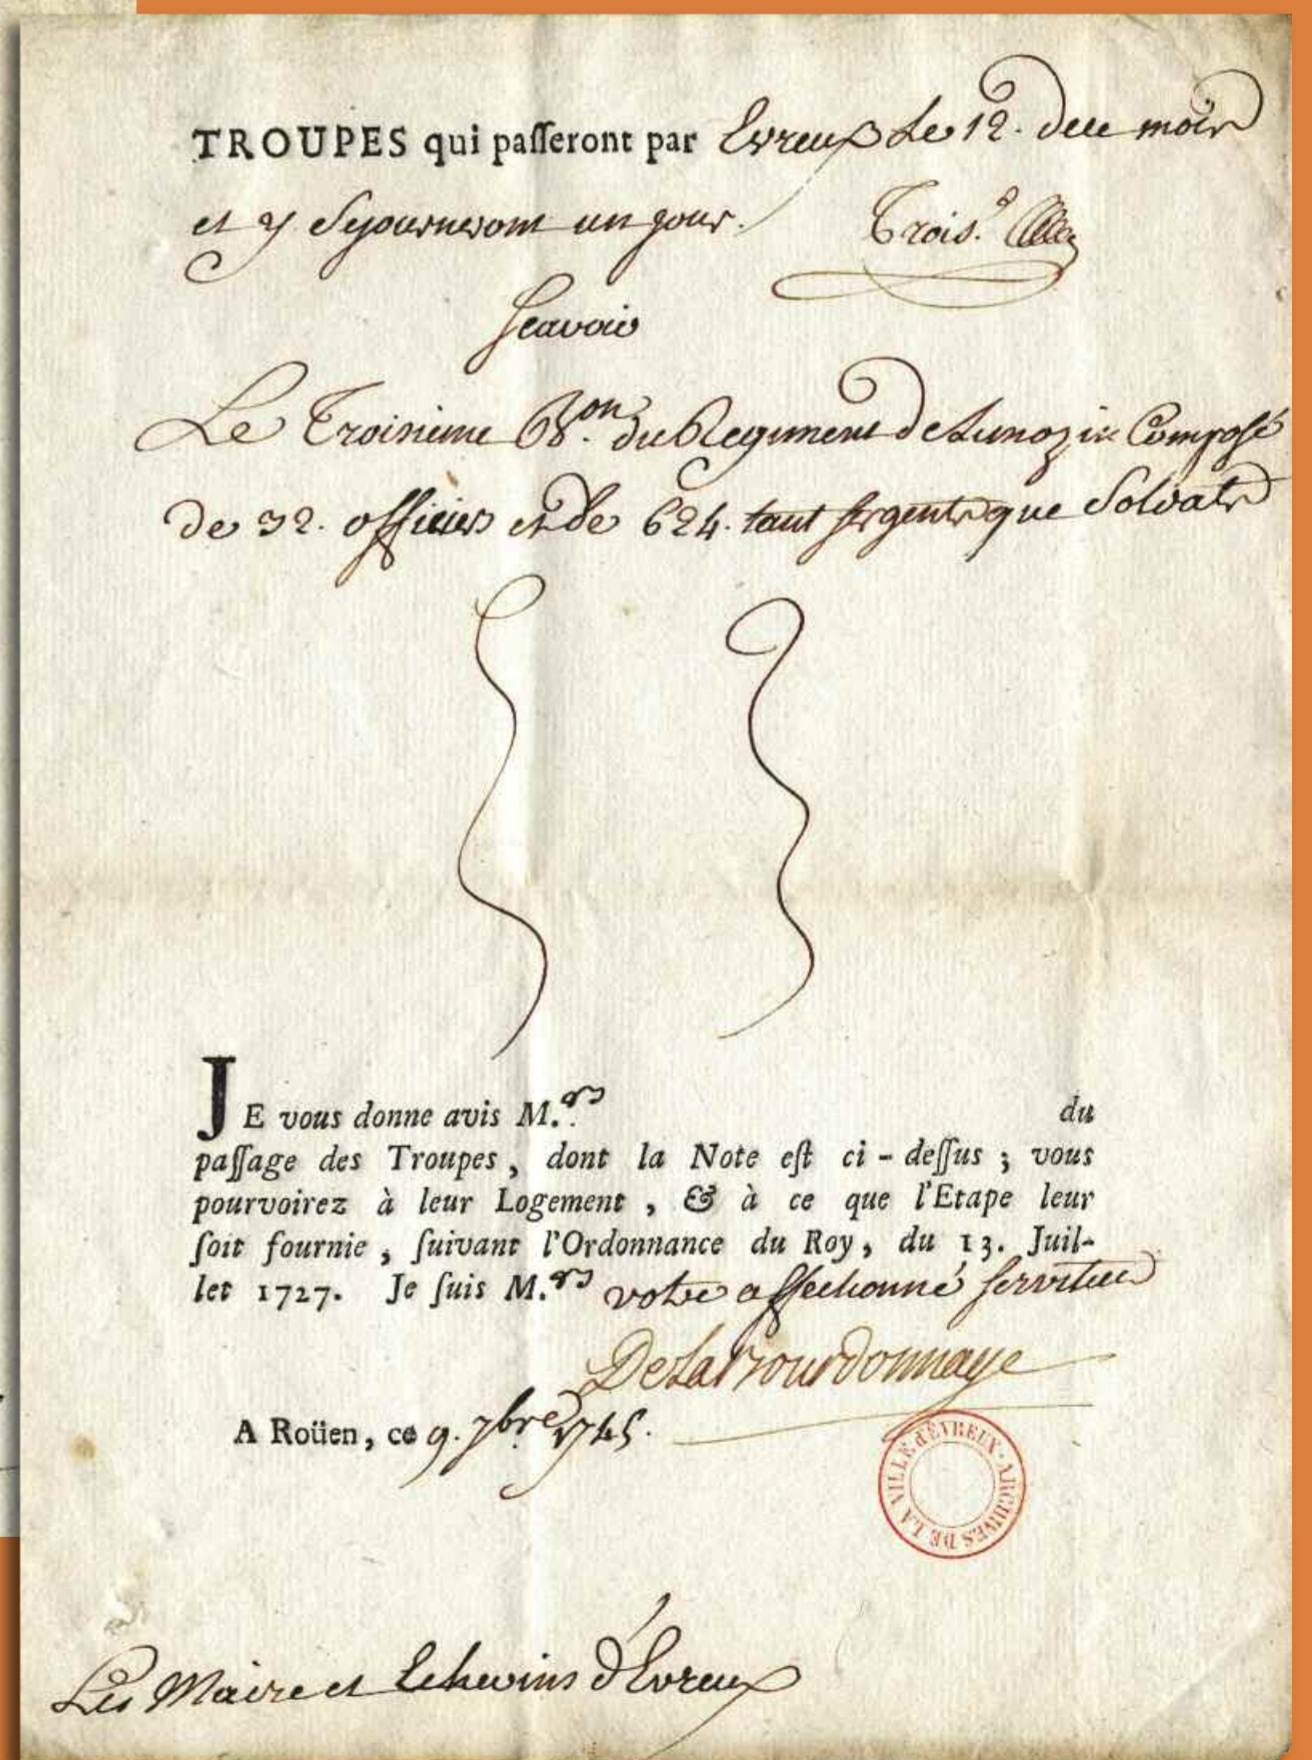 TROUPES qui paſſeront par Evreux Le 12. de ce mois
et y Sejourneront un jour. Trois.
Scavoir
Le Troisieme B.on du Regiment de Compoſé
de 32. officiers et de 624. tant ſergents que Soldats
JE vous donne avis M.rs du
paſſage des Troupes, dont la Note eſt ci-deſſus ; vous
pourvoirez à leur Logement, & à ce que l'Etape leur
ſoit fournie, ſuivant l'Ordonnance du Roy, du 13. Juil-
let 1727. Je ſuis M.rs votre affectionné ſerviteur
DeLaBourdonnaye
A Roüen, ce 9. 7bre 1745.
ARCHIVES DE LA VILLE d'ÉVREUX
Les Maire et Echevins d'Evreux